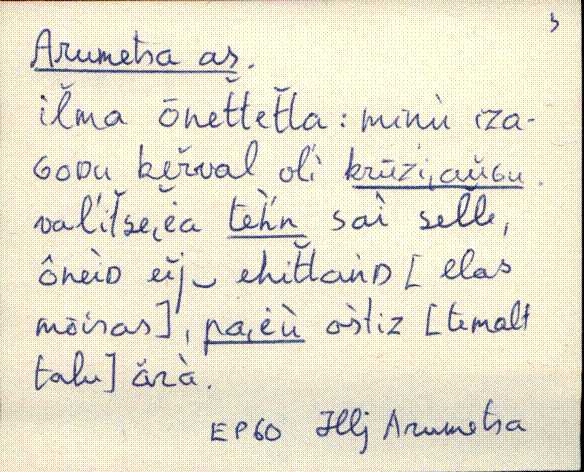 3
Arumetsa as.
il̆ma ōnet̆tet̆la : minù iza-
GODU kĕr̆val oĺi krūźi,au̯Gu.
vaĺit̆se,ėa teh̀n saì sel̆le,
ôneìD ei̯j ehit̆tanD [elas
mōisas], pa,ėù os̀tiz [temalt
talu] ărà.
EP60 Hllj Arumetsa